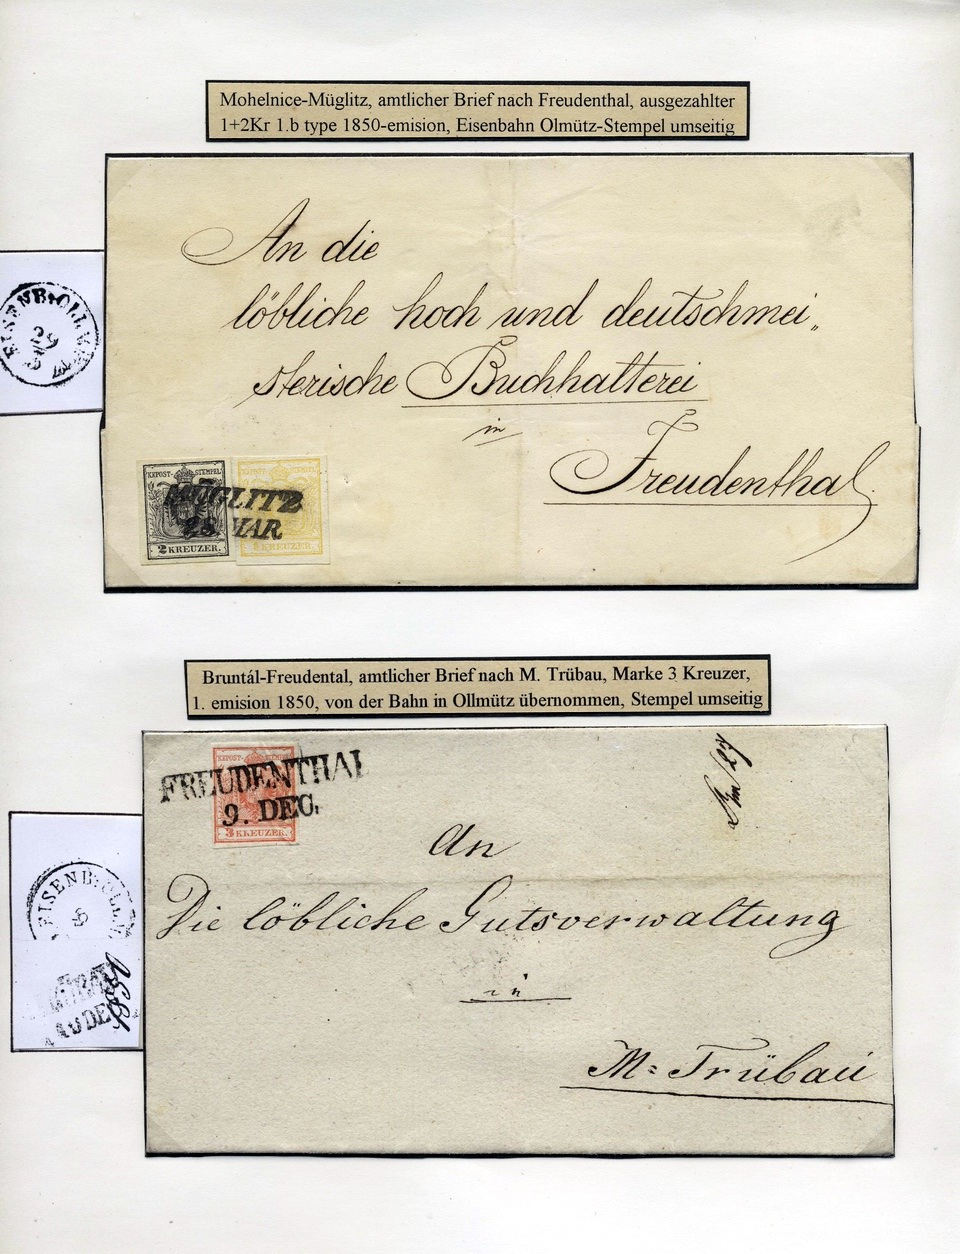 Mohelnice-Müglitz, amtlicher Brief nach Freudenthal, ausgezahlter
1+2Kr 1.b type 1850-emision, Eisenbahn Olmütz-Stempel umseitig
An die
löbliche hoch und deutschmei„
sterische Buchhalterei
in
Freudenthal
EISENB:OLLMÜTZ
29
KKPOST-STEMPEL
2 KREUZER.
KREUZER.
MÜGLITZ
28. MAR
Bruntál-Freudental, amtlicher Brief nach M. Trübau, Marke 3 Kreuzer,
1. emision 1850, von der Bahn in Ollmütz übernommen, Stempel umseitig
3 KREUZER.
FREUDENTHAL
9. DEC.
An
Die löbliche Gutsverwaltung
in
M: Trübau
EISENB:OLLM
DE